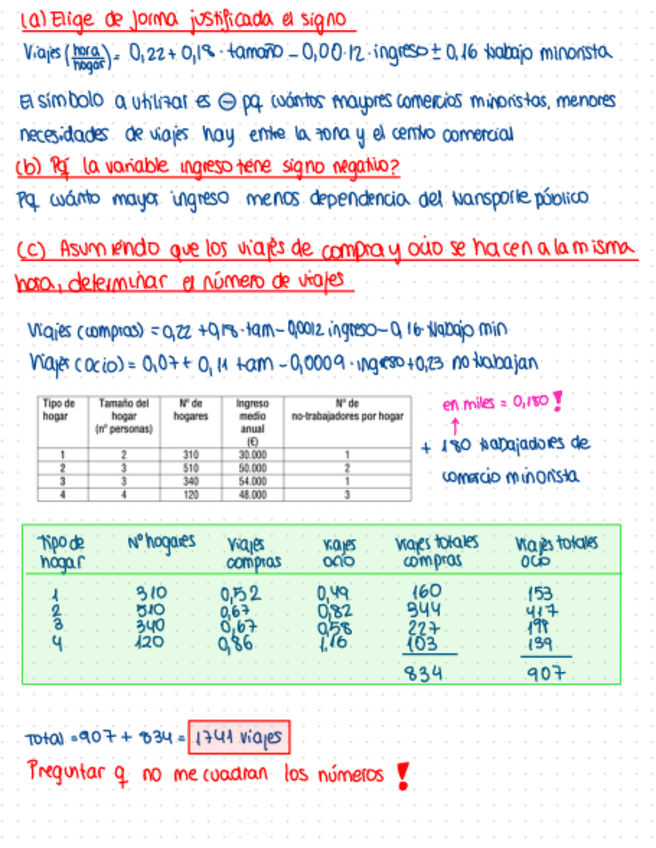 (a) Elige de forma justificada el signo
Viajes (hora/hogar) = 0,22 + 0,18 · tamaño - 0,00·12 · ingreso ± 0,16 trabajo minorista
El símbolo a utilizar es ⊖ pq cuántos mayores comercios minoristas, menores
necesidades de viajes hay entre la zona y el centro comercial
(b) Pq la variable ingreso tene signo negativo?
Pq cuánto mayor ingreso menos dependencia del transporte público
(c) Asumiendo que los viajes de compra y ocio se hacen a la misma
hora, determinar el número de viajes
Viajes (compras) = 0,22 + 0,18 · tam - 0,0012 ingreso - 0,16 trabajo min
Viajes (ocio) = 0,07 + 0,11 tam - 0,0009 · ingreso + 0,23 no trabajan
Tipo de hogar Tamaño del hogar (nº personas) Nº de hogares Ingreso medio anual (€) Nº de no-trabajadores por hogar
1 2 310 30.000 1
2 3 510 50.000 2
3 3 340 54.000 1
4 4 120 48.000 3
en miles = 0,180 !
↑
+ 180 trabajadores de
comercio minorista
Tipo de hogar Nº hogares Viajes compras Viajes ocio Viajes totales compras Viajes totales ocio
1 310 0,52 0,49 160 153
2 510 0,67 0,82 344 417
3 340 0,67 0,58 227 198
4 120 0,86 1,16 103 139
834 907
Total = 907 + 834 = 1741 viajes
Preguntar q no me cuadran los números !